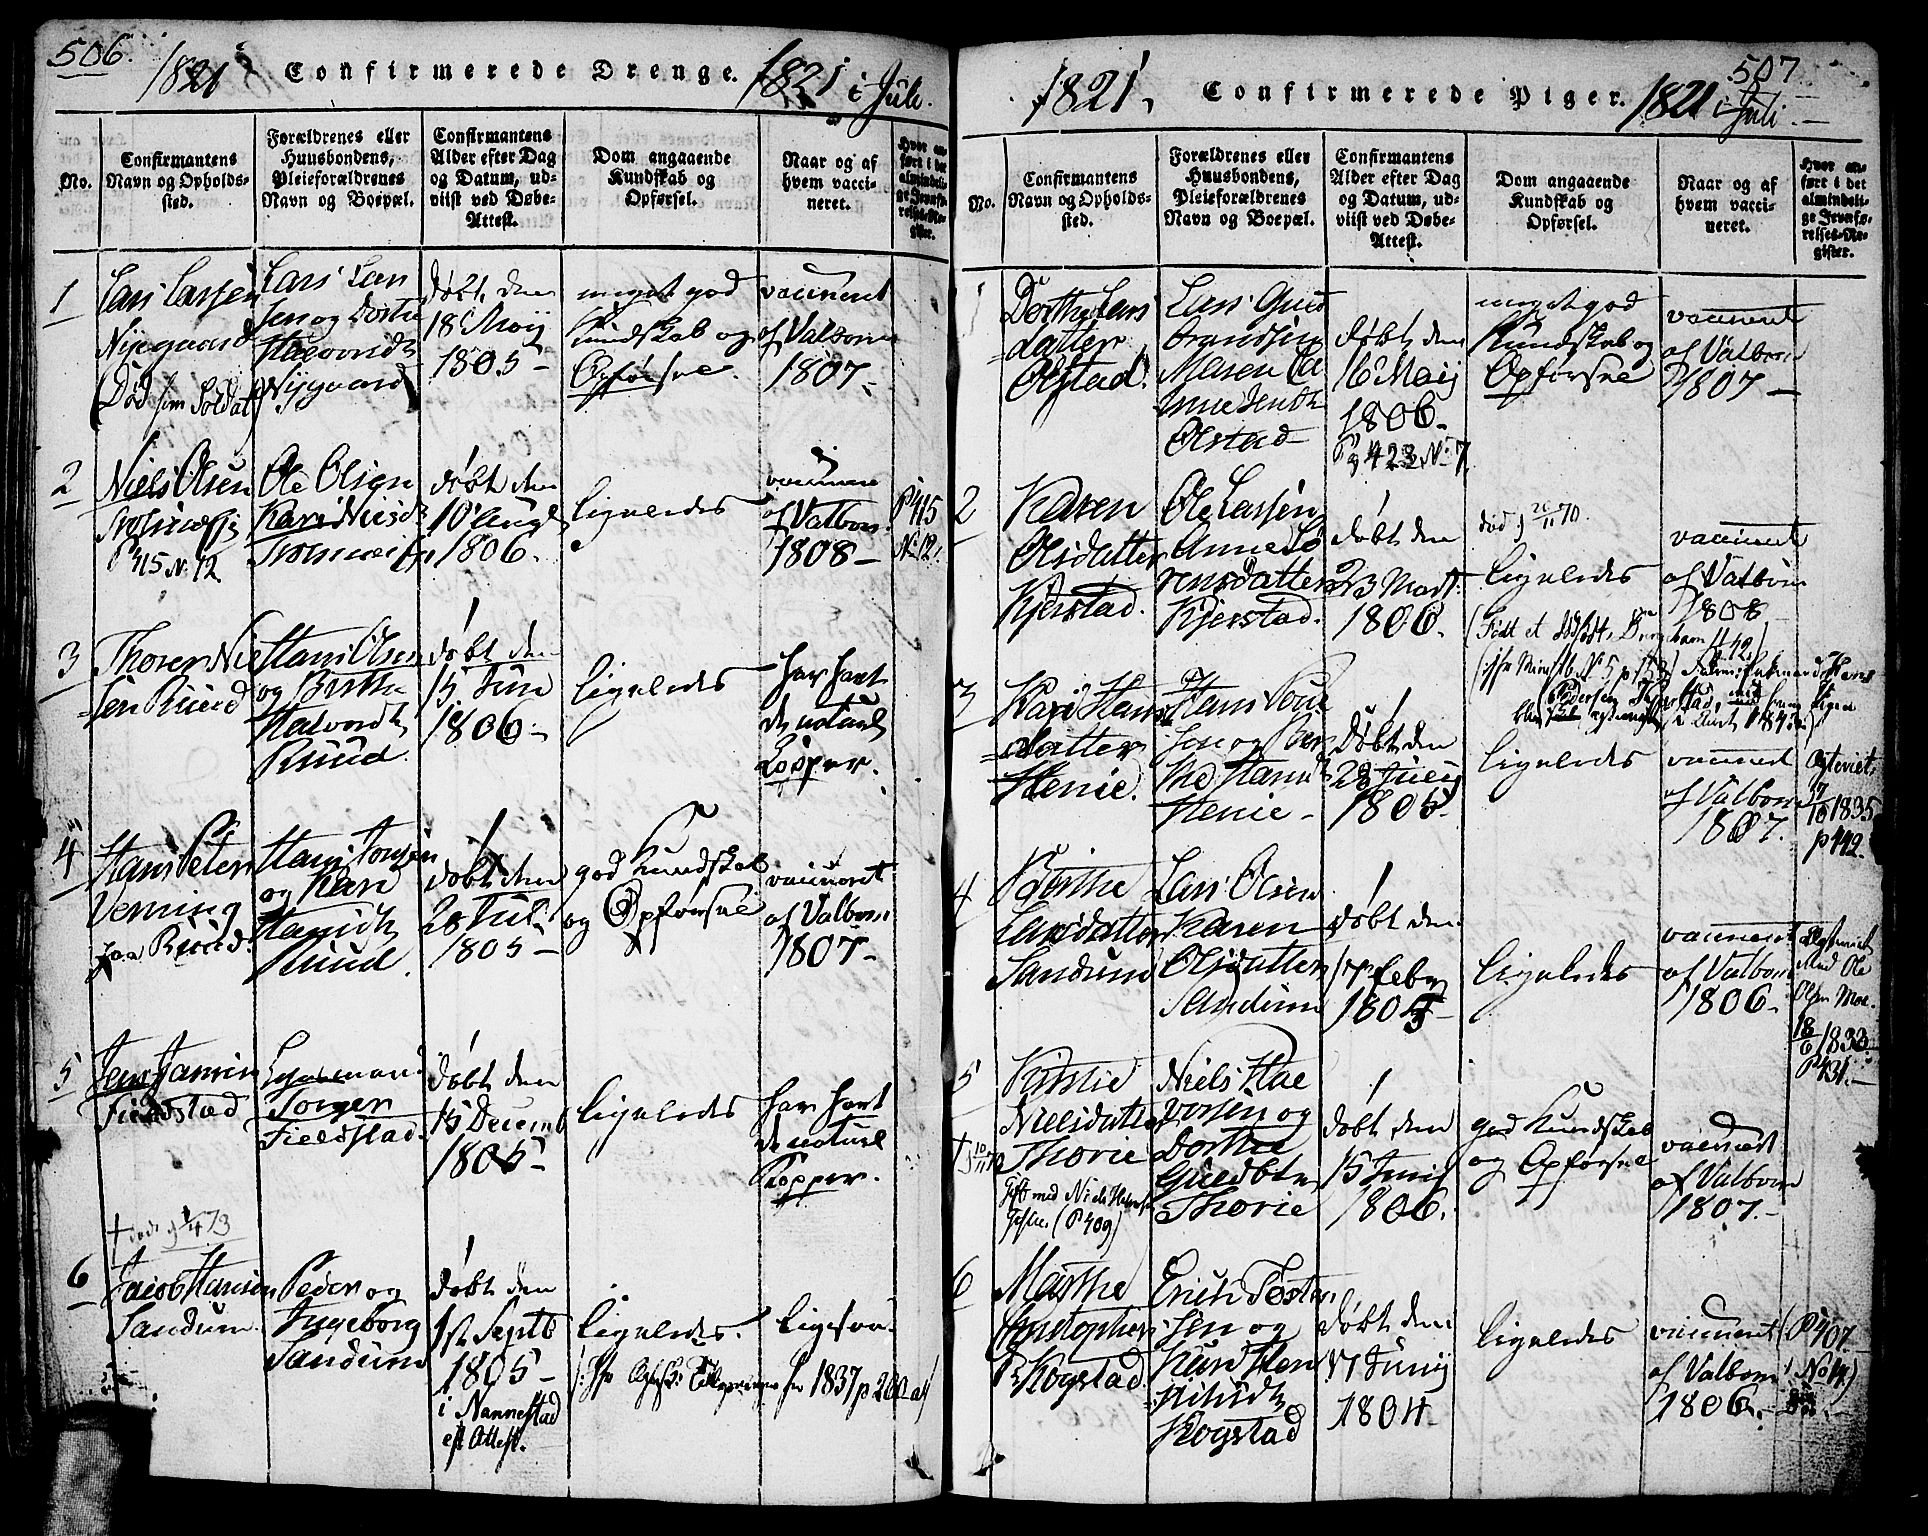 506.
1821 Confirmerede Drenge. 1821 i Juli.
No.
Confirmantens
Navn og Opholds-
sted.
Forældrenes eller
Huusbondens,
Pleieforældrenes
Navn og Boepæl.
Confirmantens
Alder efter Dag
og Datum, ud-
viist ved Døbe-
Attest.
Dom angaaende
Kundskab og
Opførsel.
Naar og af
hvem vacci-
neret.
Hvor an-
ført i det
almindeli-
ge Jevnfø-
relses-Re-
gister.
1
Lars Larsen
Nygaard
(Død som Soldat)
Lars Lar
sen og Dorthe
Halvorsdt
Nygaard
Døbt den
18 Maij
1805
meget god
Kundskab og
Opførsel.
vaccineret
af Valbom
1807
2
Niels Olsen
P 415 N. 12
Ole Olsen
Kari Nielsd
døbt den
10 Aug
1806.
ligeledes
af Valbom
1808
P 415
No 12.
3
Thorer Niel
sen Ruud
Hans Olsen
og Berthe
Halvordt
Ruud
døbt den
15 Juni
1806
ligeledes
har havt
de naturl
Kopper.
4
Hans Peter
Verning
paa Ruud
Hans Jonsen
og Kari
Hansdt
Ruud
døbt den
20 Juli
1805
god Kundskab
og Opførsel
vaccineret
af Valbom
1807
5
Jens Jansen
Fieldstad
Torger
Fieldstad
døbt den
15 Decemb
1805
ligeledes
har havt
de naturl
Kopper.
6
† død 1/4 73
Jacob Hansen
Sandum.
Peder og
Ingeborg
Sandum
døbt den
1st Septb
1805
i Nannestad
efter Attest.
ligeledes.
ligesaa
for 1837 p 260
507
1821, Confirmerede Piger. 1821 i Juli.
No.
Confirmantens
Navn og Opholds-
sted.
Forældrenes eller
Huusbondens,
Pleieforældrenes
Navn og Boepæl.
Confirmantens
Alder efter Dag
og Datum, ud-
viist ved Døbe-
Attest.
Dom angaaende
Kundskab og
Opførsel.
Naar og af
hvem vacci-
neret.
Hvor an-
ført i det
almindeli-
ge Jevnfø-
relses-Re-
gister.
1
Dorthe Lars
datter
Ølstad.
Lars Gud
brandsen
Maren
Ølstad
døbt den
16 Maij
1806
P 423 No 7
meget god
Kundskab og
Opførsel
vaccineret
af Valbom
1807
2
Karen
Olsdatter
Kjerstad.
Ole Larsen
Anne Sø
rensdatter
Kjerstad.
døbt den
23 Marts
1806.
død 26/11 70.
ligeledes
vaccineret
af Valbom
1808
3
Kari Hans
datter
Henie.
Hans Poul
sen og Ber
the Hansdt
Henie
Døbt den
28 Juny
1805
ligeledes
vaccineret
af Valbom
1807.
Ægteviet
17/10 1835
p 442.
4
Berthe
Larsdatter
Sandum
Lars Olsen
Karen
Olsdatter
Sandum
døbt den
17 Feby
1805
ligeledes
vaccineret
af Valbom
1806
Med Ole
Olsen Moe.
P 431.
5
† 10/11 72
Kirstie
Nielsdatter
Thorie
Gift med Niels Hansen
(P 409)
Niels Hal
vorsen og
Dorthe
Guldbt
Thorie
døbt den
15 Junij
1806.
god Kundskab
og Opførsel
vaccineret
af Valbom
1807.
6
Marthe
Kogstad
Erich Tosten
sen og
Kogstad
døbt den
17 Junij
1804
ligeledes
vaccineret
af Valbom
1806.
(P 407.
No 14)